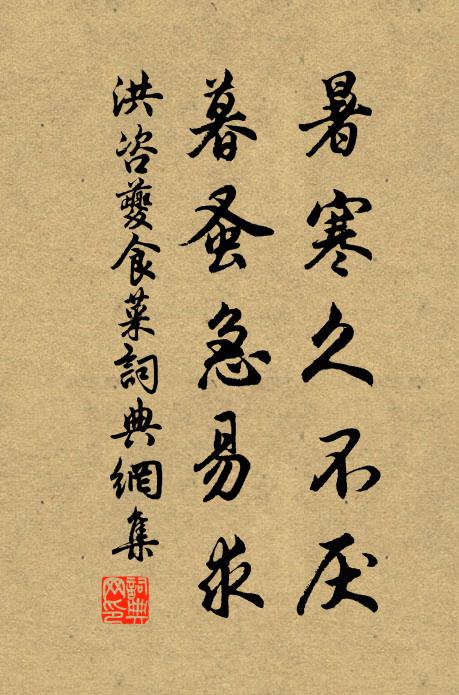 暑寒久不厌
暮蚤急易求
洪咨夔食菜詞典網集
詞典网印